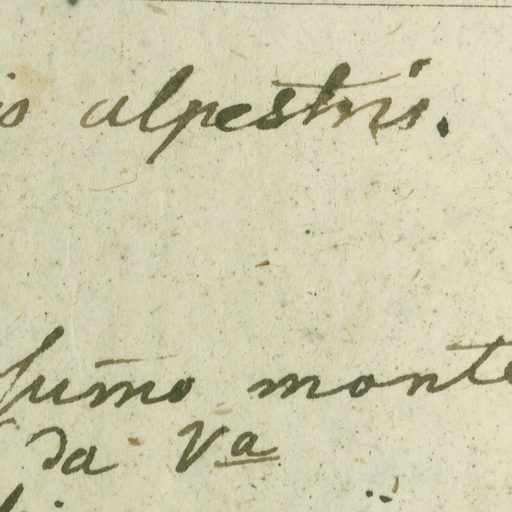 alpestris.
sum̄o monte
da Va